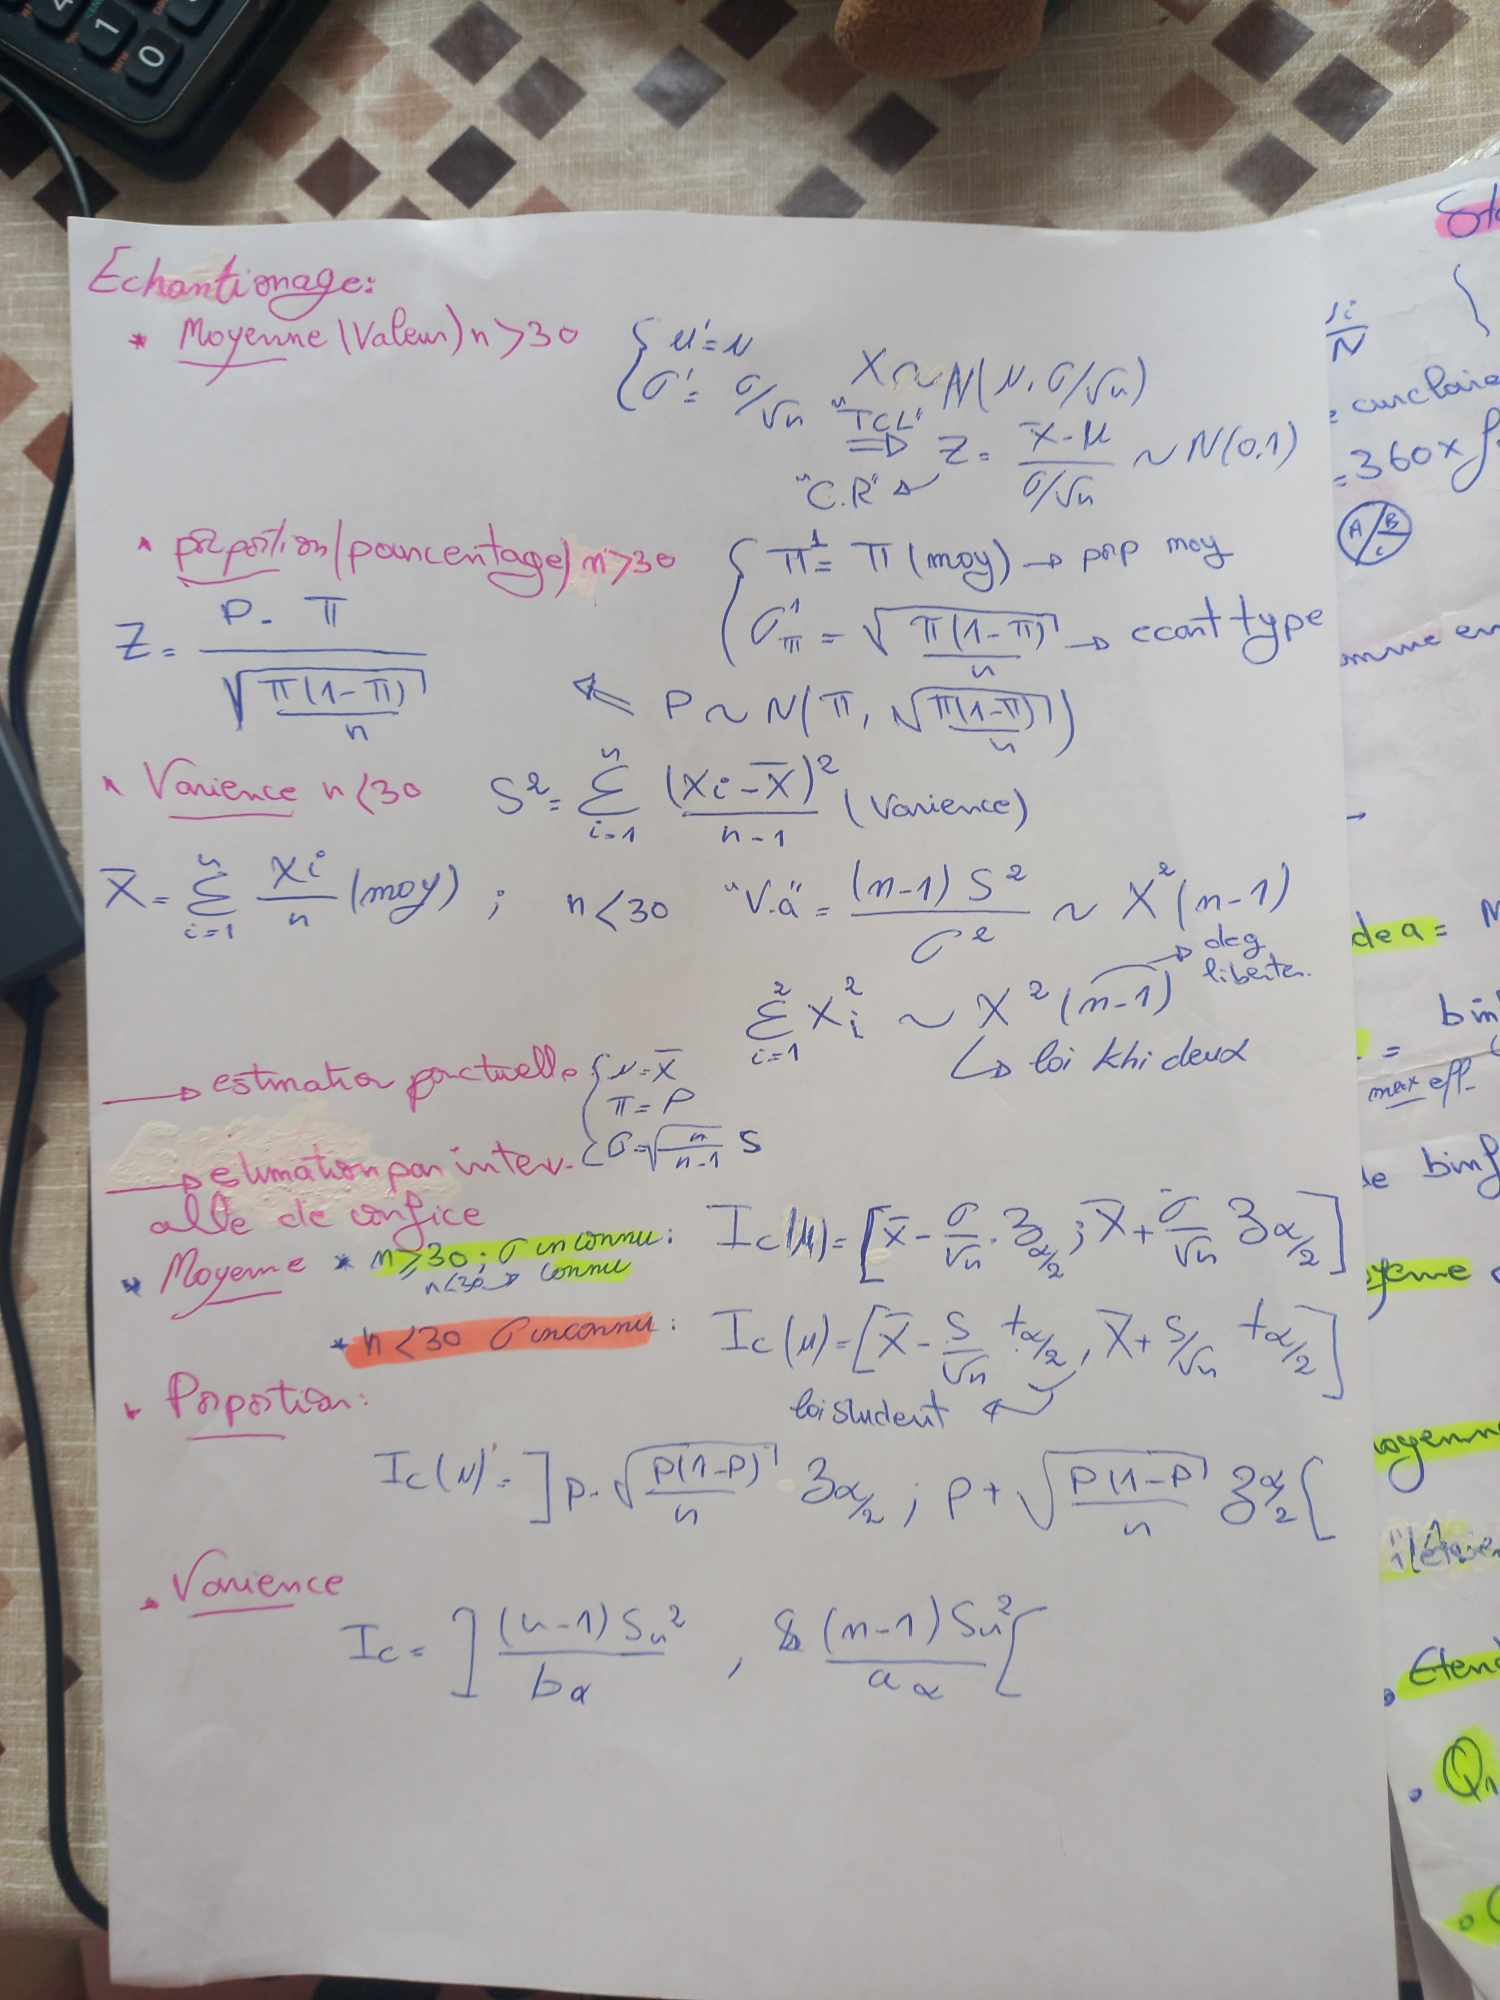 Echantionage:
* Moyenne (Valeur) n > 30 { μ' = μ
σ' = σ/√n X ~ N(μ, σ/√n)
"TCL" ⇒ Z = (x̄ - μ)/(σ/√n) ~ N(0,1)
"C.R"
* proportion (pourcentage) n > 30 { π' = π (moy) → prop moy
σ'π = √(π(1-π)/n) → ecart type
Z = (P - π)/√(π(1-π)/n) ⇐ P ~ N(π, √(π(1-π)/n))
* Varience n < 30 S² = Σ i=1 n (Xi - X̄)²/(n-1) (varience)
X̄ = Σ i=1 n Xi/n (moy) ; n < 30 "V.a" = (n-1)S²/σ² ~ X²(n-1)
→ deg liberter.
Σ i=1 2 Xi² ~ X²(n-1)
↳ loi khi deux
→ estimation ponctuelle { μ = X̄
π = P
σ = √(n/(n-1)) S
→ estimation par interv-
alle de confice
* Moyenne * n ≥ 30 ; σ inconnu : Ic(μ) = [x̄ - σ/√n . z α/2 ; X̄ + σ/√n z α/2]
n<30 → connu
* n < 30 σ inconnu : Ic(μ) = [X̄ - S/√n t α/2 , X̄ + S/√n t α/2]
loi student
* Poportion:
Ic(μ) = ]P - √(P(1-P)/n) . z α/2 ; P + √(P(1-P)/n) z α/2[
. Varience
Ic = ](n-1)Sn²/bα , (n-1)Sn²/aα[
N
= 360 x f
A B C
omme en
dea =
bin
=
max eff.
de binf
oyenne
Q1